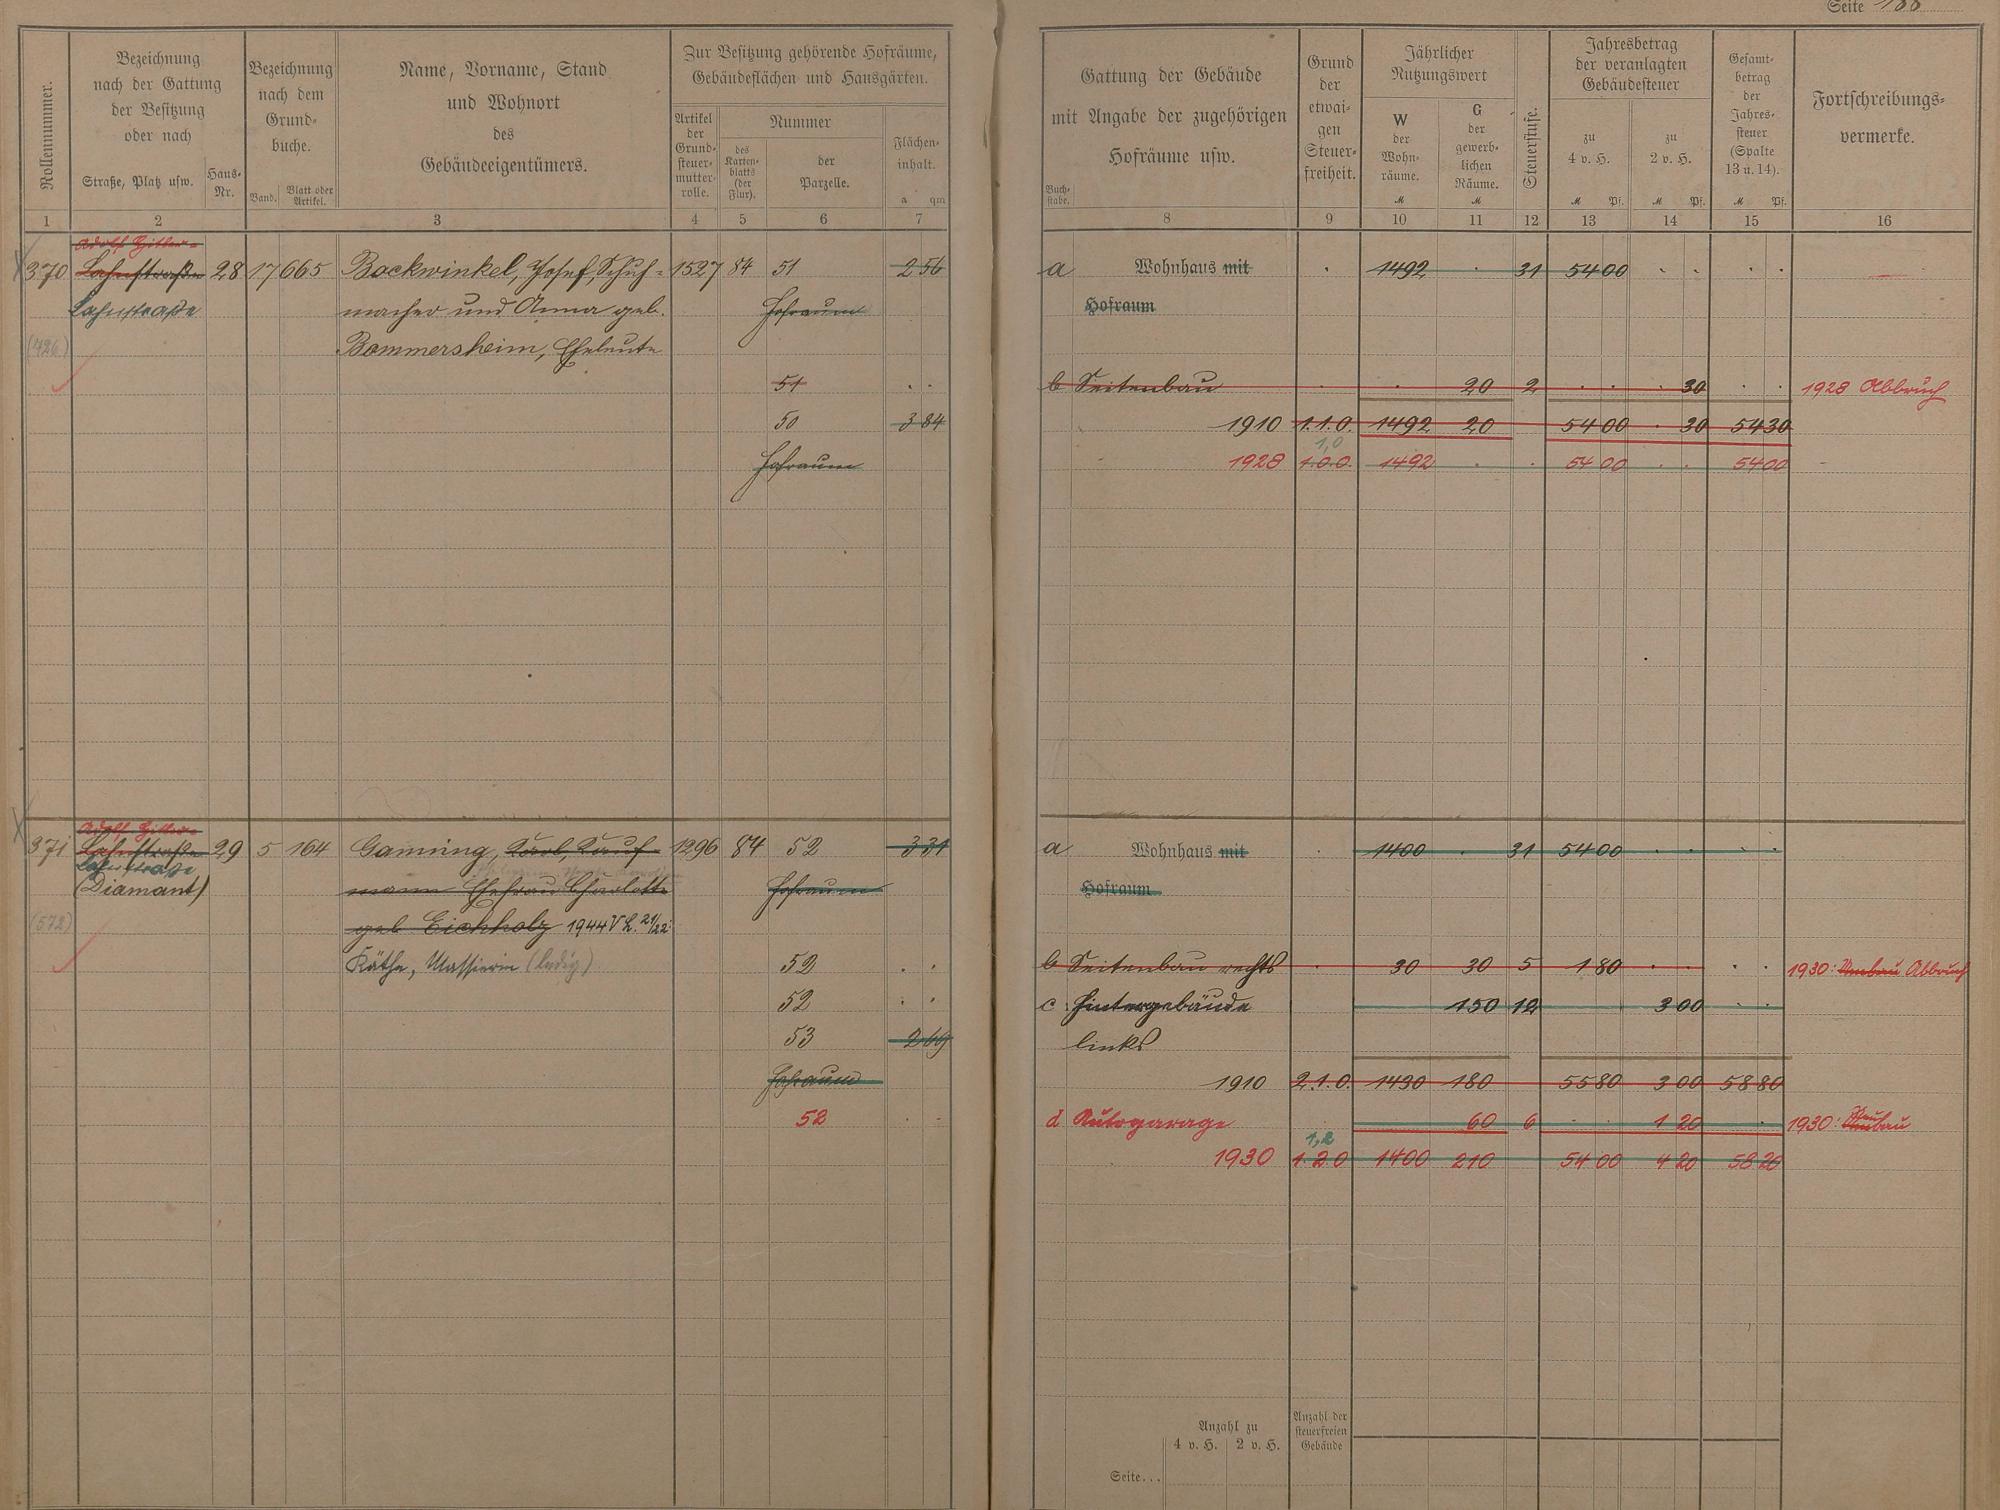 Seite 188
Rollennummer.
Bezeichnung
nach der Gattung
der Besitzung
oder nach
Straße, Platz usw.
Haus-
Nr.
Bezeichnung
nach dem
Grund-
buche.
Band.
Blatt oder
Artikel.
Name, Vorname, Stand
und Wohnort
des
Gebäudeeigentümers.
Zur Besitzung gehörende Hofräume,
Gebäudeflächen und Hausgärten.
Artikel
der
Grund-
steuer-
mutter-
rolle.
Nummer
des
Karten-
blatts
(der
Flur).
der
Parzelle.
Flächen-
inhalt.
a qm
Gattung der Gebäude
mit Angabe der zugehörigen
Hofräume usw.
Buch-
stabe.
Grund
der
etwai-
gen
Steuer-
freiheit.
Jährlicher
Nutzungswert
W
der
Wohn-
räume.
M
G
der
gewerb-
lichen
Räume.
M
Steuerstufe.
Jahresbetrag
der veranlagten
Gebäudesteuer
zu
4 v. H.
M Pf.
zu
2 v. H.
M Pf.
Gesamt-
betrag
der
Jahres-
steuer
(Spalte
13 u. 14).
M Pf.
Fortschreibungs-
vermerke.
1 2 3 4 5 6 7 8 9 10 11 12 13 14 15 16
Adolf Hitler-
370 Lahnstraße 28 17 665 Bockwinkel, Josef, Schuh- 1527 84 51 2 56 a Wohnhaus mit 1492 31 54 00
Lahnstraße macher und Anna geb. Hofraum Hofraum
(426) Bommersheim, Eheleute
51 b Seitenbau 20 2 30 1928 Abbruch
50 3 84 1910 1.1.0. 1492 20 54 00 30 54 30
1,0
Hofraum 1928 1.0.0. 1492 54 00 54 00
Adolf Hitler-
371 Lahnstraße 29 5 164 Gaming, Karl, Kauf- 1296 84 52 3 31 a Wohnhaus mit 1400 31 54 00
Lahnstraße
(Diamant) mann Ehefrau Charlotte Hofraum Hofraum
(572) geb. Eichholz 1944 V L. 21/22
Käthe, Massierin (ledig) 52 b Seitenbau rechts 30 30 5 1 80 1930: Umbau Abbruch
52 c Hintergebäude 150 12 3 00
53 2 69 links
Hofraum 1910 2.1.0. 1430 180 55 80 3 00 58 80
52 d Autogarage 60 6 1 20 1930: Neubau
1,2
1930 1.2.0 1400 210 54 00 4 20 58 20
Anzahl zu
4 v. H. 2 v. H.
Anzahl der
steuerfreien
Gebäude
Seite...